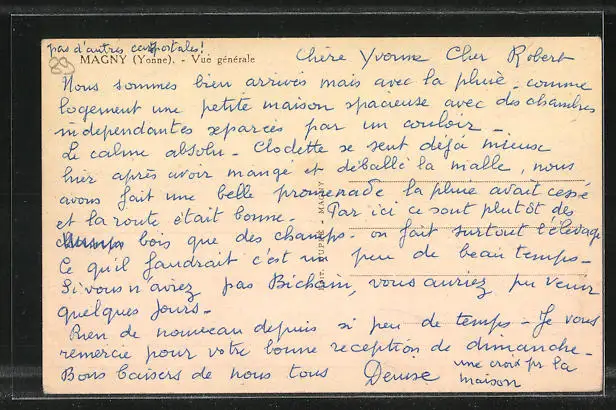 pas d'autres cartes postales!
83
MAGNY (Yonne). - Vue générale
Chère Yvonne Cher Robert
Nous sommes bien arrivés mais avec la pluie - comme
logement une petite maison spacieuse avec des chambres
indépendantes séparées par un couloir -
Le calme absolu - Clodette se sent déjà mieux
hier après avoir mangé et déballé la malle, nous
avons fait une belle promenade la pluie avait cessé
et la route était bonne - Par ici ce sont plutôt des
bois que des champs - on fait surtout l'élevage
Ce qu'il faudrait c'est un peu de beau temps -
Si vous n'aviez pas Bichain, vous auriez pu venir
quelques jours -
Rien de nouveau depuis si peu de temps - Je vous
remercie pour votre bonne réception de dimanche -
Bons baisers de nous tous Denise
une croix pr la
maison